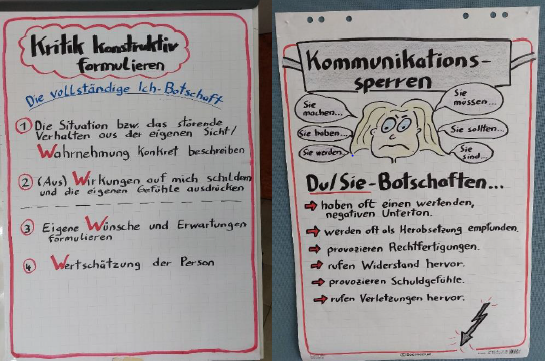 Kritik konstruktiv
formulieren
Die vollständige Ich-Botschaft
1 Die Situation bzw. das störende
Verhalten aus der eigenen Sicht/
Wahrnehmung konkret beschreiben
2 (Aus) Wirkungen auf mich schildern
und die eigenen Gefühle ausdrücken
3 Eigene Wünsche und Erwartungen
formulieren
4 Wertschätzung der Person
Kommunikations-
sperren
Sie
machen...
Sie haben...
Sie werden
Sie
müssen...
Sie sollten...
Sie
sind...
Du/Sie-Botschaften...
haben oft einen wertenden,
negativen Unterton.
werden oft als Herabsetzung empfunden.
provozieren Rechtfertigungen.
rufen Widerstand hervor.
provozieren Schuldgefühle.
rufen Verletzungen hervor.